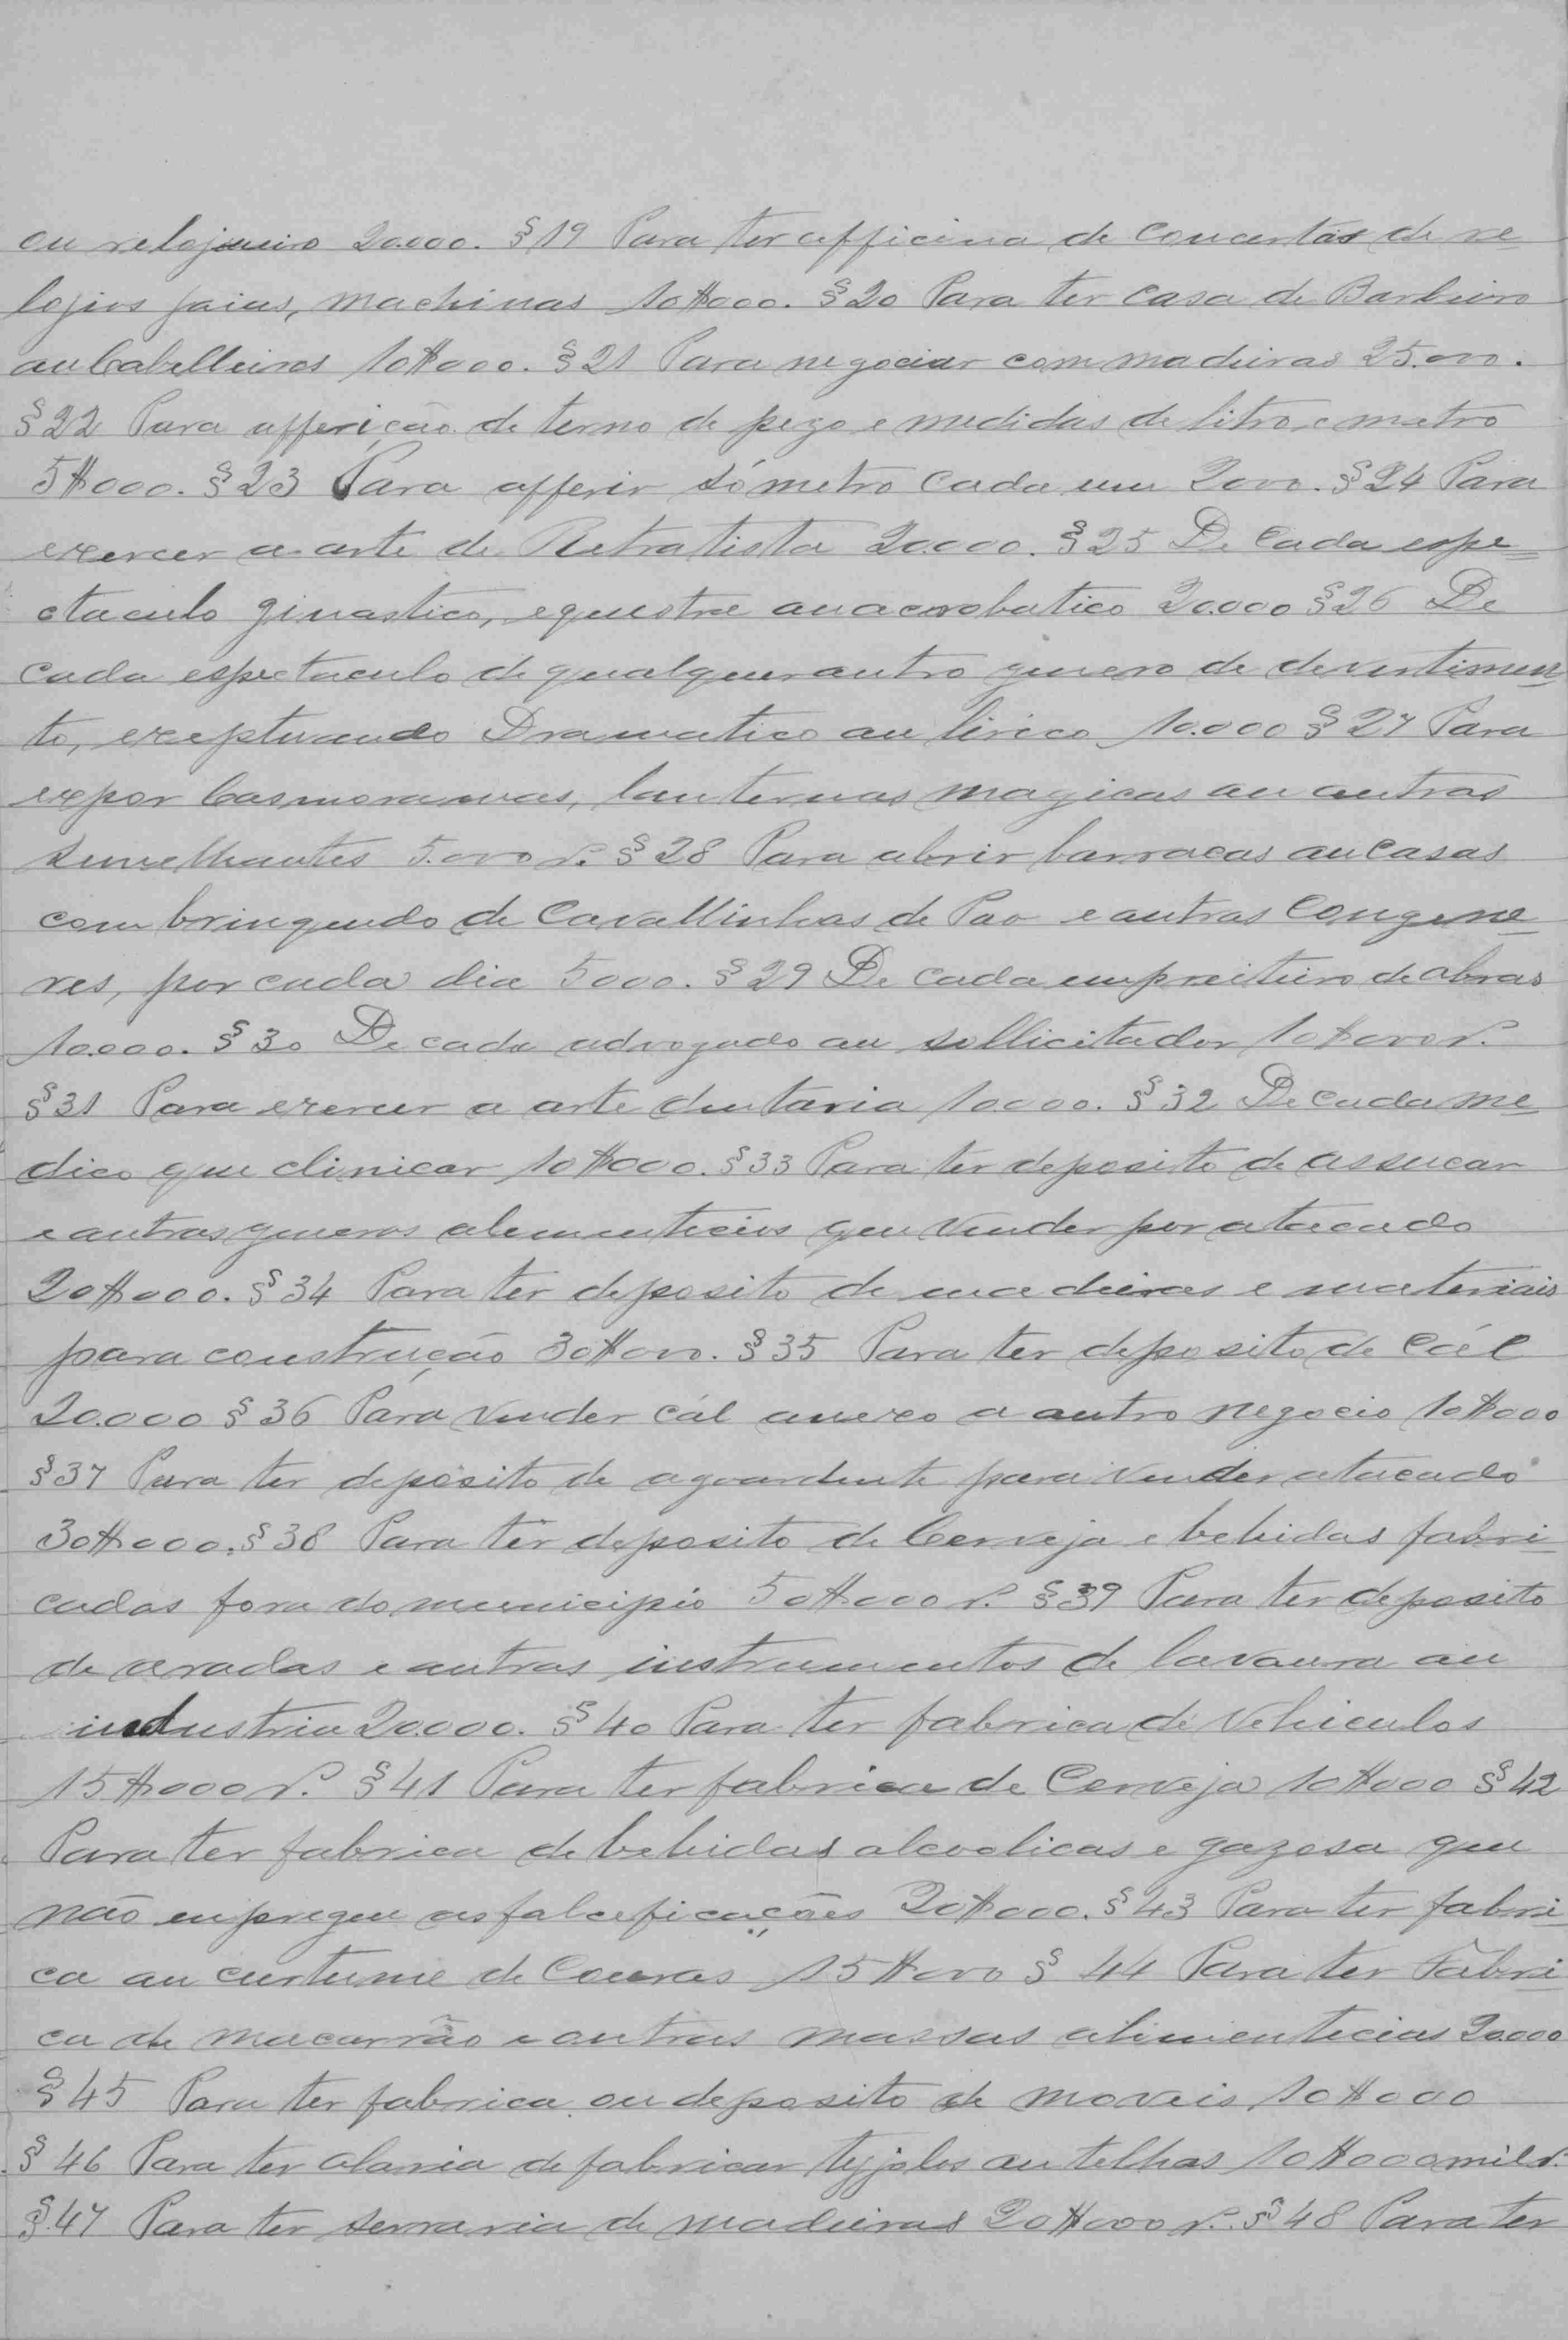 ou relojoueiro 20.000. § 19 Para ter officina de Concertos de re
logios joias, machinas 10$000. § 20 Para ter Casa de Barbeiro
ou Cabelleiros 10$000. § 21 Para negociar com madeiras 25.000.
§ 22 Para afferição de terno de pezo e medidas de litro, e metro
5$000. § 23 Para afferir sómetro Cada um 2000. § 24 Para
exercer a arte de Retratista 20.000. § 25 De Cada espe=
ctaculo ginastico, equestre ou acrobatico 20.000 § 26 De
cada espectaculo de qualquer outro genero de devertimen
to, exceptuando Dramatico ou lirico 10.000 § 27 Para
expor Cosmoramas, lanternas magicas ou outras
semelhantes 5.000 r. § 28 Para abrir barracas ou Casas
com brinquedo de Cavallinhos de Pao e outros Congene=
res, por cada dia 5000. § 29 De cada empreiteiro de obras
10.000. § 30 De cada advogado ou sollicitador 10$000 r.
§ 31 Para exercer a arte dentaria 10000. § 32 De cada me
dico que clinicar 10$000. § 33 Para ter deposito de assucar
e outros generos alementicios que vender por atacado
20$000. § 34 Para ter deposito de madeiras e materiais
para construção 30$000. § 35 Para ter deposito de Cál
20.000 § 36 Para vender cál anexo a outro negocio 10$000
§ 37 Para ter deposito de agoardente para vender atacado
30$000. § 38 Para ter deposito de Cerveja e bebidas fabri=
cadas fora do municipio 50$000 r. § 39 Para ter deposito
de arados e outros instrumentos de lavoura ou
industria 20.000. § 40 Para ter fabrica de Vehiculos
15$000 r. § 41 Para ter fabrica de Cerveja 10$000 § 42
Para ter fabrica de bebidas alcoolicas e gazosa que
não empregue as falceficações 20$000. § 43 Para ter fabri
ca ou curtume de Couros 15$000 § 44 Para ter Fabri
ca de macarrão e outras massas alimenticias 20.000
§ 45 Para ter fabrica ou deposito de moveis 10$000
§ 46 Para ter olaria de fabricar tyjolos ou telhas 10$000 mil r.
§ 47 Para ter serraria de madeiras 20$000 r. § 48 Para ter